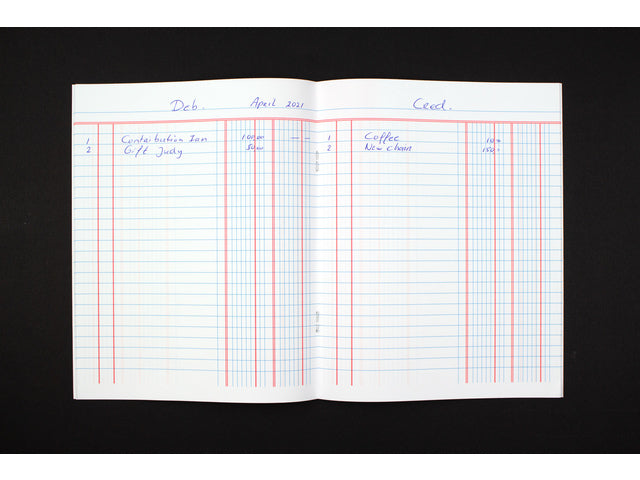 Deb. April 2021
1 Contribution Ian 100,00 — —
2 Gift Judy 50,00
Cred.
1 Coffee 10 =
2 New Chair 150 =